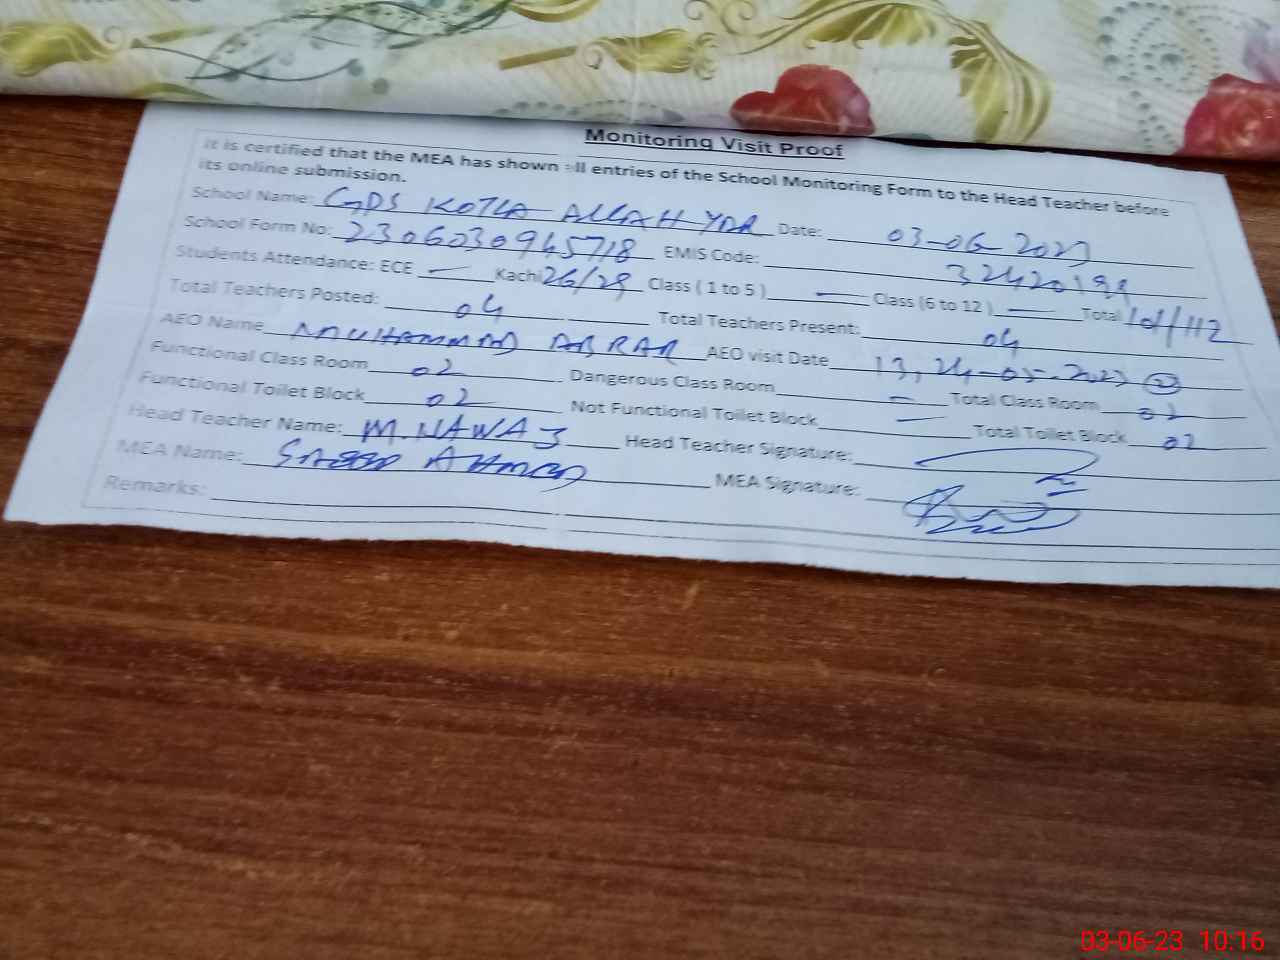 Monitoring Visit Proof
It is certified that the MEA has shown all entries of the School Monitoring Form to the Head Teacher before
its online submission.
School Name: GPS KOTLA ALLAH YAR Date: 03-06-2023
School Form No: 2306030945718 EMIS Code: 32420199
Students Attendance: ECE — Kachi 26/29 Class ( 1 to 5 ) — Class (6 to 12 ) — Total 101/112
Total Teachers Posted: 04 Total Teachers Present: 04
AEO Name MUHAMMAD ABRAR AEO visit Date 13, 24-05-2023 (2)
Functional Class Room 02 Dangerous Class Room — Total Class Room 02
Functional Toilet Block 02 Not Functional Toilet Block — Total Toilet Block 02
Head Teacher Name: M.NAWAZ Head Teacher Signature:
MEA Name: SAEED AHMED MEA Signature:
Remarks:
03-06-23 10:16